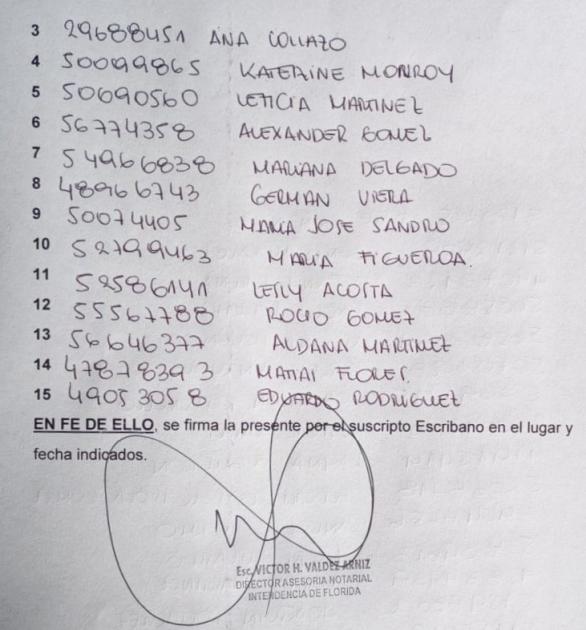 3 29688451 ANA COLLAZO
4 50099865 KATERINE MONROY
5 50690560 LETICIA MARTINEZ
6 56774358 ALEXANDER GOMEZ
7 54966838 MARIANA DELGADO
8 48966743 GERMAN VIERA
9 50074405 MARIA JOSE SANDRO
10 52799463 MARIA FIGUEROA.
11 52586141 LESLY ACOSTA
12 55567788 ROCIO GOMEZ
13 56646377 ALDANA MARTINEZ
14 47878393 FLORES.
15 49053058 EDUARDO RODRIGUEZ
EN FE DE ELLO, se firma la presente por el suscripto Escribano en el lugar y
fecha indicados.
Esc. VICTOR H. VALDEZ ARNIZ
DIRECTOR ASESORIA NOTARIAL
INTENDENCIA DE FLORIDA